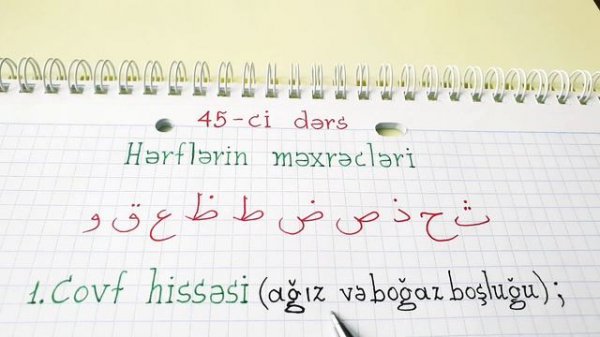 45-ci dərs
Hərflərin məxrəcləri
ث ح ذ ص ض ط ظ ع ق و
1. Covf hissəsi (ağız və boğaz boşluğu);